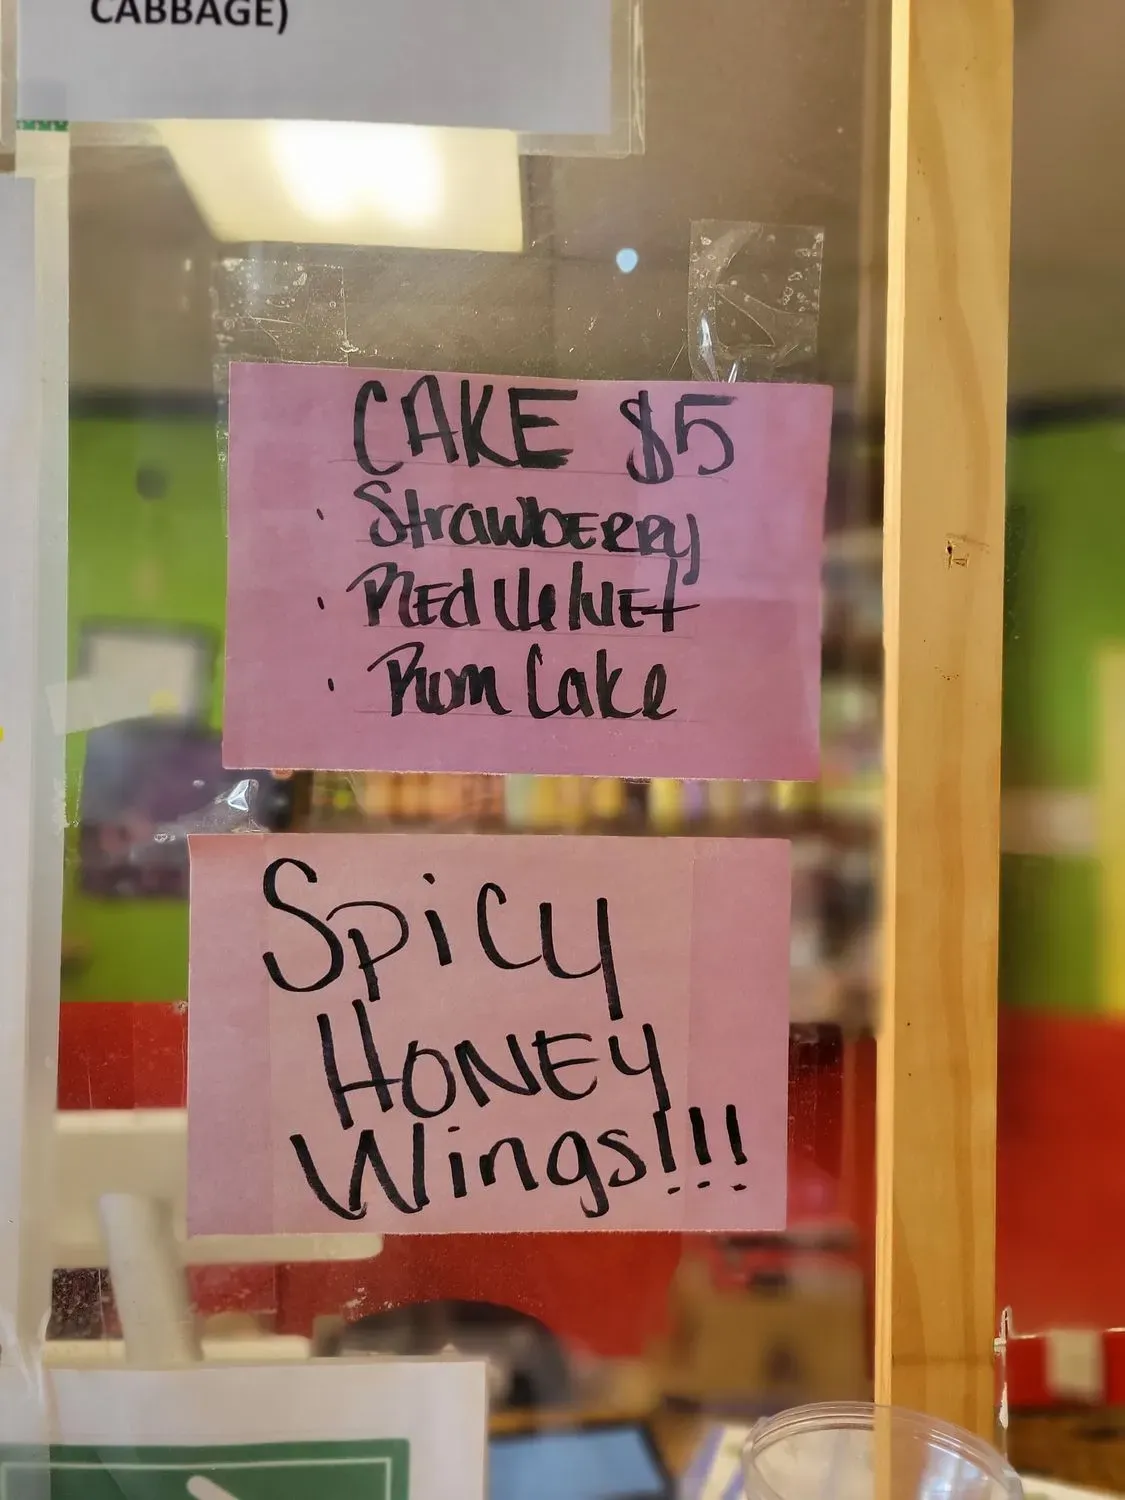 CABBAGE)
CAKE $5
· Strawberry
· Red Velvet
· Rum Cake
Spicy
Honey
Wings!!!